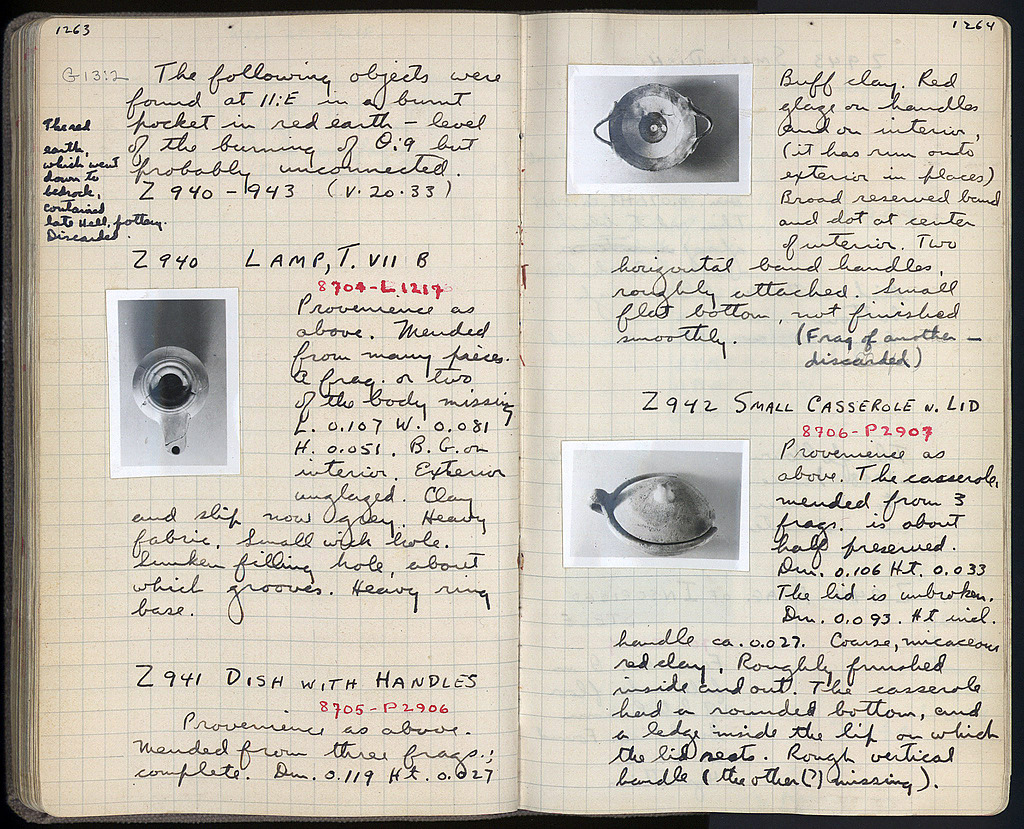 1263
G 13:2 The following objects were
found at 11:E in a burnt
pocket in red earth – level
of the burning of Θ:9 but
probably unconnected.
Z 940 - 943 (V. 20. 33)
The red
earth,
which went
down to
bedrock,
contained
late Hell. pottery.
Discarded.
Z 940 LAMP, T. VII B
8704 - L 1217
Provenience as
above. Mended
from many pieces.
A frag. or two
of the body missing
L. 0.107 W. 0.081
H. 0.051. B. G. on
interior. Exterior
unglazed. Clay
and slip now grey. Heavy
fabric. Small wick hole.
Sunken filling hole, about
which grooves. Heavy ring
base.
Z 941 DISH WITH HANDLES
8705 - P 2906
Provenience as above.
Mended from three frags.;
complete. Dm. 0.119 Ht. 0.027
1264
Buff clay, Red
glaze on handles
and on interior,
(it has run onto
exterior in places)
Broad reserved band
and dot at center
of interior. Two
horizontal band handles,
roughly attached. Small
flat bottom, not finished
smoothly. (Frag of another –
discarded)
Z 942 SMALL CASSEROLE W. LID
8706 - P 2907
Provenience as
above. The casserole,
mended from 3
frags. is about
half preserved.
Dm. 0.106 Ht. 0.033
The lid is unbroken.
Dm. 0.093. Ht incl.
handle ca. 0.027. Coarse, micaceous
red clay, Roughly finished
inside and out. The casserole
had a rounded bottom, and
a ledge inside the lip on which
the lid rests. Rough vertical
handle (the other (?) missing).